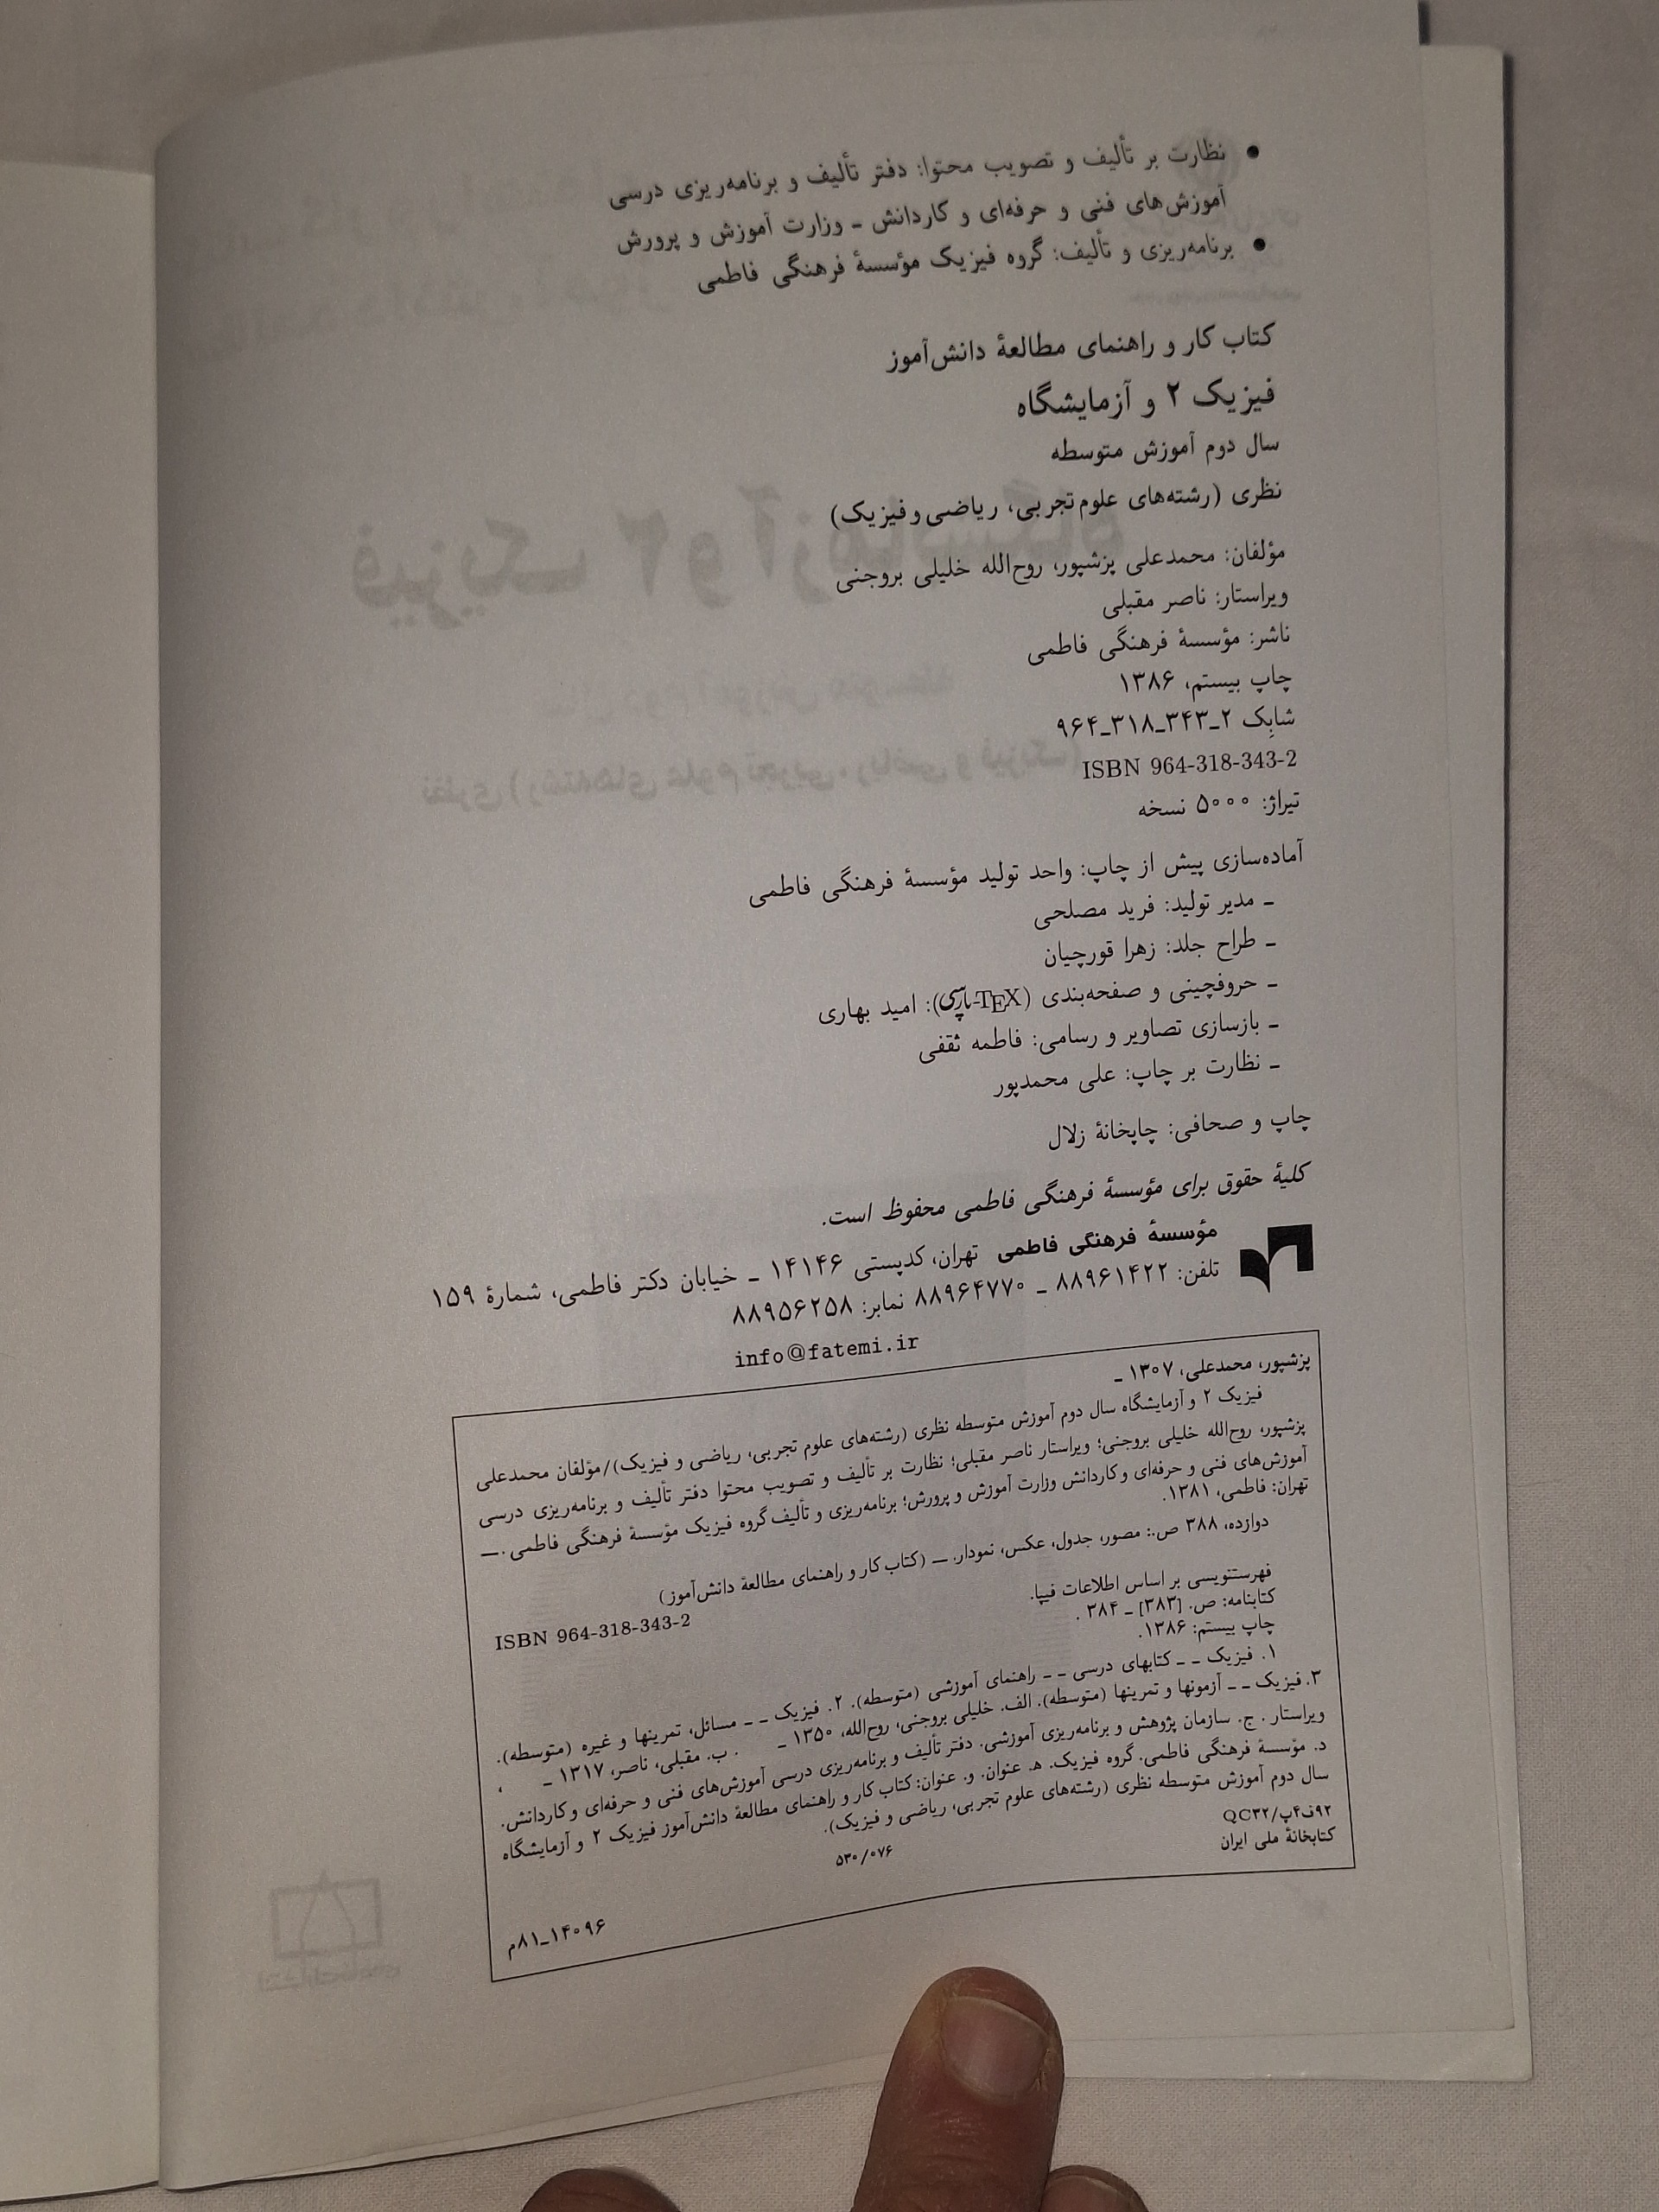 ● نظارت بر تألیف و تصویب محتوا: دفتر تألیف و برنامه‌ریزی درسی
آموزش‌های فنی و حرفه‌ای و کاردانش ـ وزارت آموزش و پرورش
● برنامه‌ریزی و تألیف: گروه فیزیک مؤسسهٔ فرهنگی فاطمی
کتاب کار و راهنمای مطالعهٔ دانش‌آموز
فیزیک ۲ و آزمایشگاه
سال دوم آموزش متوسطه
نظری (رشته‌های علوم تجربی، ریاضی و فیزیک)
مؤلفان: محمدعلی پزشپور، روح‌الله خلیلی بروجنی
ویراستار: ناصر مقبلی
ناشر: مؤسسهٔ فرهنگی فاطمی
چاپ بیستم، ۱۳۸۶
شابِک ۲ـ۳۴۳ـ۳۱۸ـ۹۶۴
ISBN 964-318-343-2
تیراژ: ۵۰۰۰ نسخه
آماده‌سازی پیش از چاپ: واحد تولید مؤسسهٔ فرهنگی فاطمی
ـ مدیر تولید: فرید مصلحی
ـ طراح جلد: زهرا قورچیان
ـ حروفچینی و صفحه‌بندی (TEX-پارسی): امید بهاری
ـ بازسازی تصاویر و رسامی: فاطمه ثقفی
ـ نظارت بر چاپ: علی محمدپور
چاپ و صحافی: چاپخانهٔ زلال
کلیهٔ حقوق برای مؤسسهٔ فرهنگی فاطمی محفوظ است.
مؤسسهٔ فرهنگی فاطمی تهران، کدپستی ۱۴۱۴۶ ـ خیابان دکتر فاطمی، شمارهٔ ۱۵۹
تلفن: ۸۸۹۶۱۴۲۲ ـ ۸۸۹۶۴۷۷۰ نمابر: ۸۸۹۵۶۲۵۸
info@fatemi.ir
پزشپور، محمدعلی، ۱۳۰۷ ـ
فیزیک ۲ و آزمایشگاه سال دوم آموزش متوسطه نظری (رشته‌های علوم تجربی، ریاضی و فیزیک)/مؤلفان محمدعلی
پزشپور، روح‌الله خلیلی بروجنی؛ ویراستار ناصر مقبلی؛ نظارت بر تألیف و تصویب محتوا دفتر تألیف و برنامه‌ریزی درسی
آموزش‌های فنی و حرفه‌ای و کاردانش وزارت آموزش و پرورش؛ برنامه‌ریزی و تألیف گروه فیزیک مؤسسهٔ فرهنگی فاطمی. —
تهران: فاطمی، ۱۳۸۱.
دوازده، ۳۸۸ ص.: مصور، جدول، عکس، نمودار. — (کتاب کار و راهنمای مطالعهٔ دانش‌آموز)
ISBN 964-318-343-2
فهرستنویسی بر اساس اطلاعات فیپا.
کتابنامه: ص. [۳۸۳] ـ ۳۸۴ .
چاپ بیستم: ۱۳۸۶.
۱. فیزیک ـ ـ کتابهای درسی ـ ـ راهنمای آموزشی (متوسطه). ۲. فیزیک ـ ـ مسائل، تمرینها و غیره (متوسطه).
۳. فیزیک ـ ـ آزمونها و تمرینها (متوسطه). الف. خلیلی بروجنی، روح‌الله، ۱۳۵۰ ـ . ب. مقبلی، ناصر، ۱۳۱۷ ـ ،
ویراستار . ج. سازمان پژوهش و برنامه‌ریزی آموزشی. دفتر تألیف و برنامه‌ریزی درسی آموزش‌های فنی و حرفه‌ای و کاردانش.
د. مؤسسهٔ فرهنگی فاطمی. گروه فیزیک. ه‍. عنوان. و. عنوان: کتاب کار و راهنمای مطالعهٔ دانش‌آموز فیزیک ۲ و آزمایشگاه
سال دوم آموزش متوسطه نظری (رشته‌های علوم تجربی، ریاضی و فیزیک).
۹۲ف۴پ/QC۳۲
۵۳۰/۰۷۶
کتابخانهٔ ملی ایران
۱۴۰۹۶ـ۸۱م